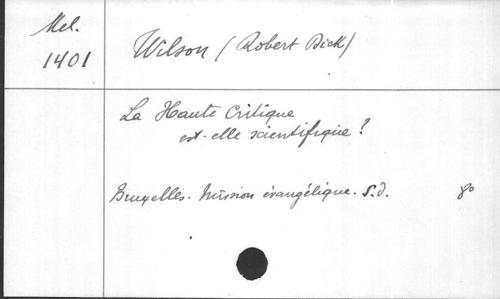 Mel.
1401
Wilson (Robert Dick)
La Haute Critique
est-elle scientifique?
Bruxelles. Mission évangélique. S.d.
8º